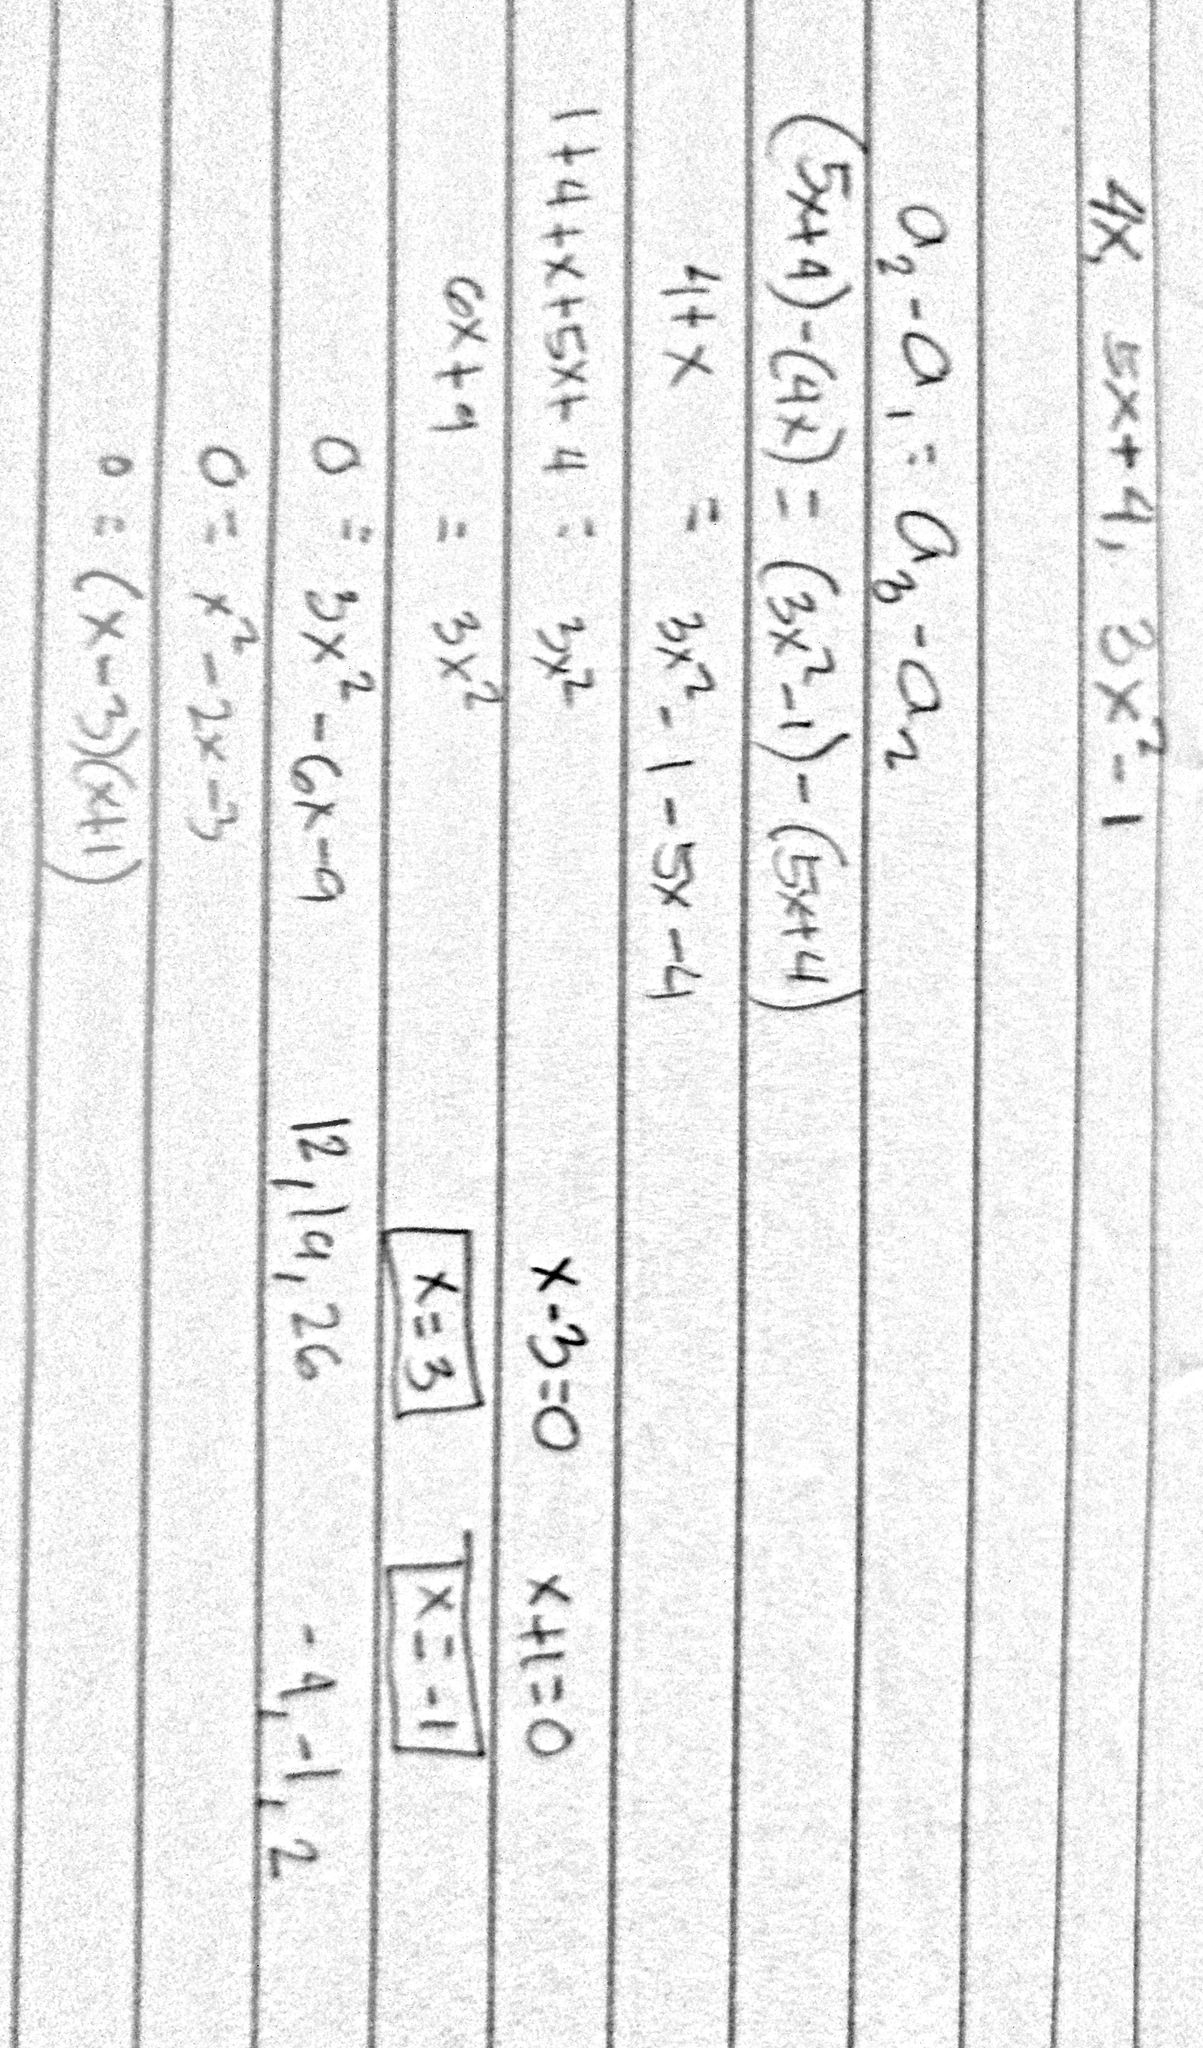 4x, 5x+4, 3x²-1
a₂-a₁=a₃-a₂
(5x+4)-(4x)=(3x²-1)-(5x+4)
4+x = 3x²-1-5x-4
1+4+x+5x+4 = 3x²
6x+9 = 3x²
0 = 3x²-6x-9
0 = x²-2x-3
0 = (x-3)(x+1)
x-3=0 x+1=0
x=3 x=-1
12, 19, 26 -4, -1, 2